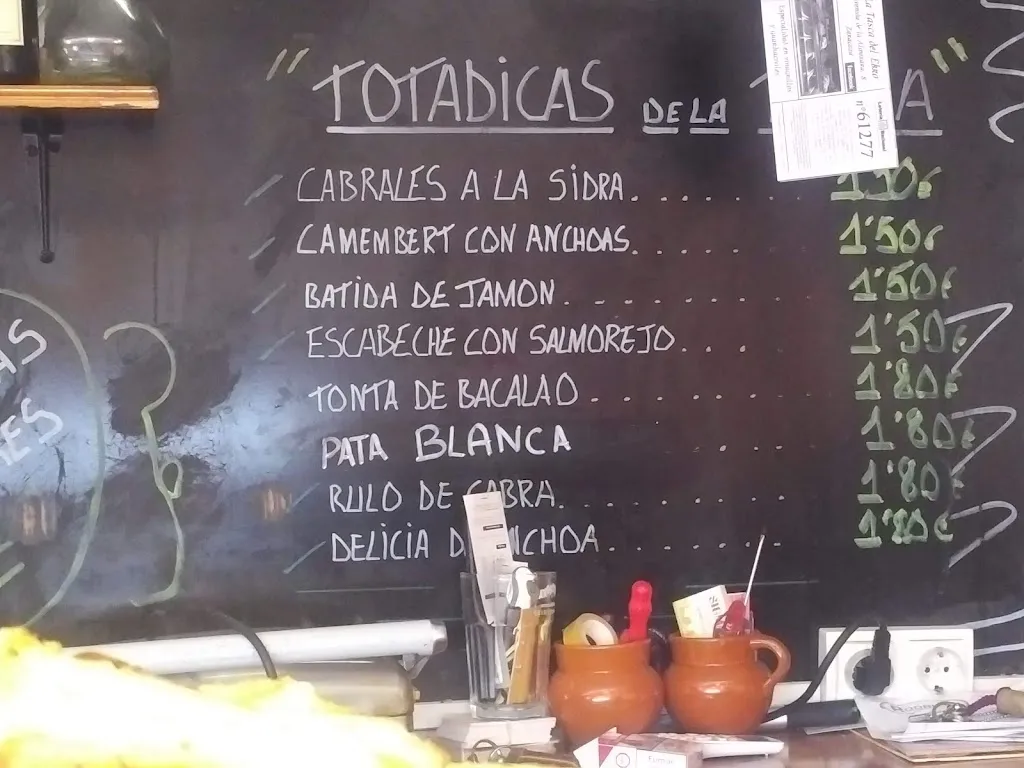 "TOTADICAS DE LA A"
CABRALES A LA SIDRA. . . . . . 1'50€
CAMEMBERT CON ANCHOAS. . . . . 1'50€
BATIDA DE JAMON. . . . . . . 1'50€
ESCABECHE CON SALMOREJO. . . . 1'50€
TONTA DE BACALAO. . . . . . . 1'80€
PATA BLANCA . . . 1'80€
RULO DE CABRA. . . . . . . 1'80€
DELICIA D NCHOA. . . . . . . 1'80€
La Tasca del Ebro
nº 61277
AS
ES
Fumar